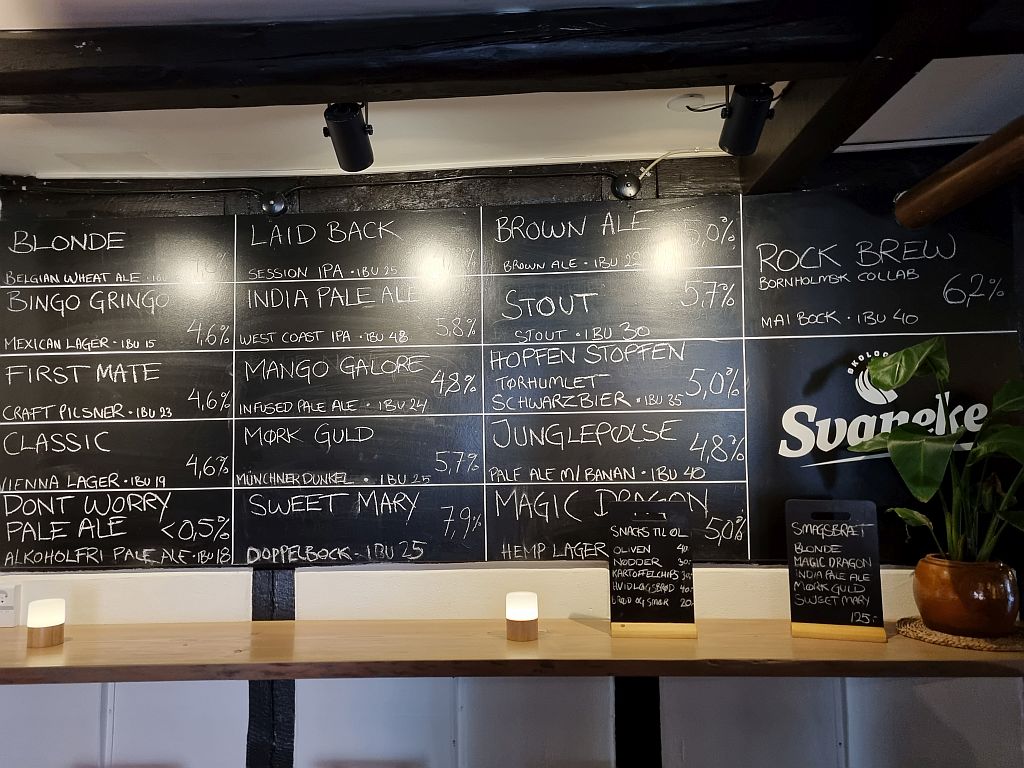 BLONDE
BELGIAN WHEAT ALE · IBU
BINGO GRINGO
4,6%
MEXICAN LAGER · IBU 15
FIRST MATE
4,6%
CRAFT PILSNER · IBU 23
CLASSIC
4,6%
VIENNA LAGER · IBU 19
DONT WORRY
PALE ALE <0,5%
ALKOHOLFRI PALE ALE · IBU 18
LAID BACK
SESSION IPA · IBU 25
INDIA PALE ALE
5,8%
WEST COAST IPA · IBU 48
MANGO GALORE
4,8%
INFUSED PALE ALE · IBU 24
MØRK GULD
5,7%
MÜNCHNER DUNKEL · IBU 25
SWEET MARY
7,9%
DOPPELBOCK · IBU 25
BROWN ALE
5,0%
BROWN ALE · IBU
STOUT
5,7%
STOUT · IBU 30
HOPFEN STOPFEN
TØRHUMLET
5,0%
SCHWARZBIER · IBU 35
JUNGLEPØLSE
4,8%
PALE ALE M/BANAN · IBU 40
MAGIC DRAGON
5,0%
HEMP LAGER
ROCK BREW
BORNHOLMSK COLLAB
6,2%
MAI BOCK · IBU 40
Svaneke
SNACKS TIL ØL
OLIVEN 40,-
NØDDER 30,-
KARTOFFELCHIPS 30,-
HVIDLØGSBRØD 40,-
BRØD OG SMØR 20,-
SMAGSBRÆT
BLONDE
MAGIC DRAGON
INDIA PALE ALE
MØRK GULD
SWEET MARY
125,-